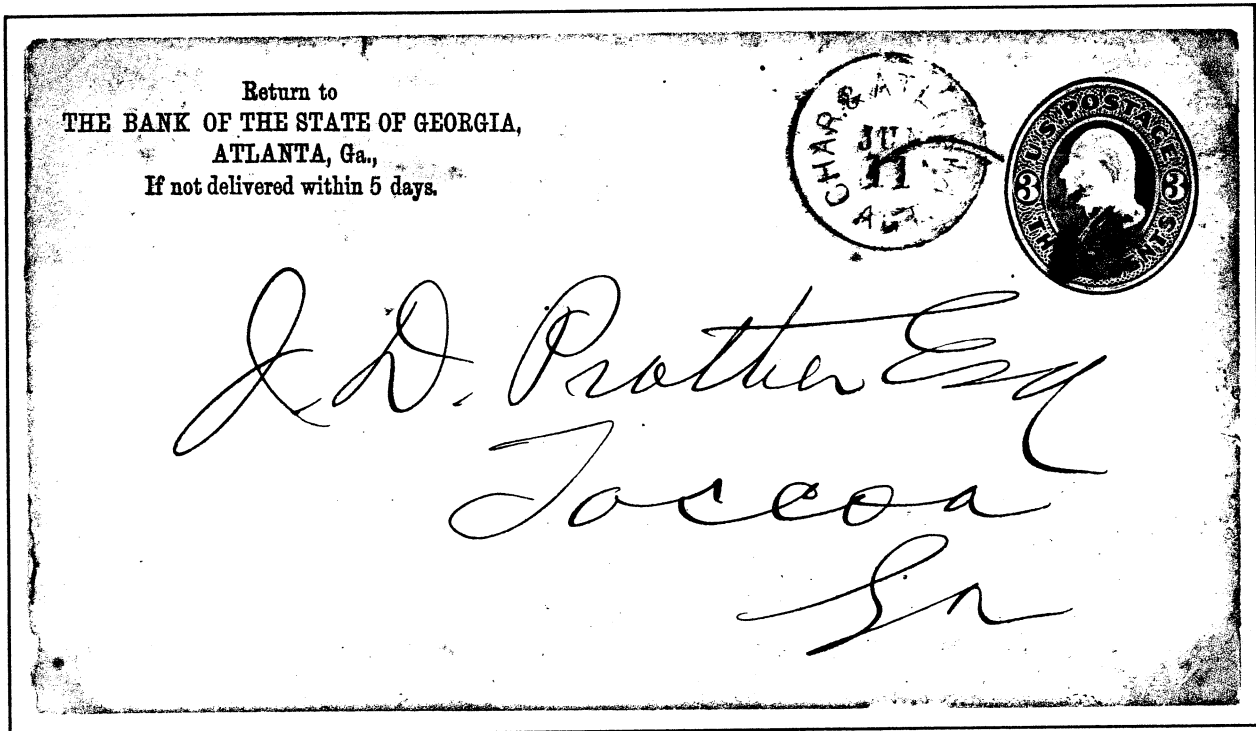 Return to
THE BANK OF THE STATE OF GEORGIA,
ATLANTA, Ga.,
If not delivered within 5 days.
CHAR. & ATL
11
U.S. POSTAGE
3 3
J. D. Prather Esq
Toccoa
Ga